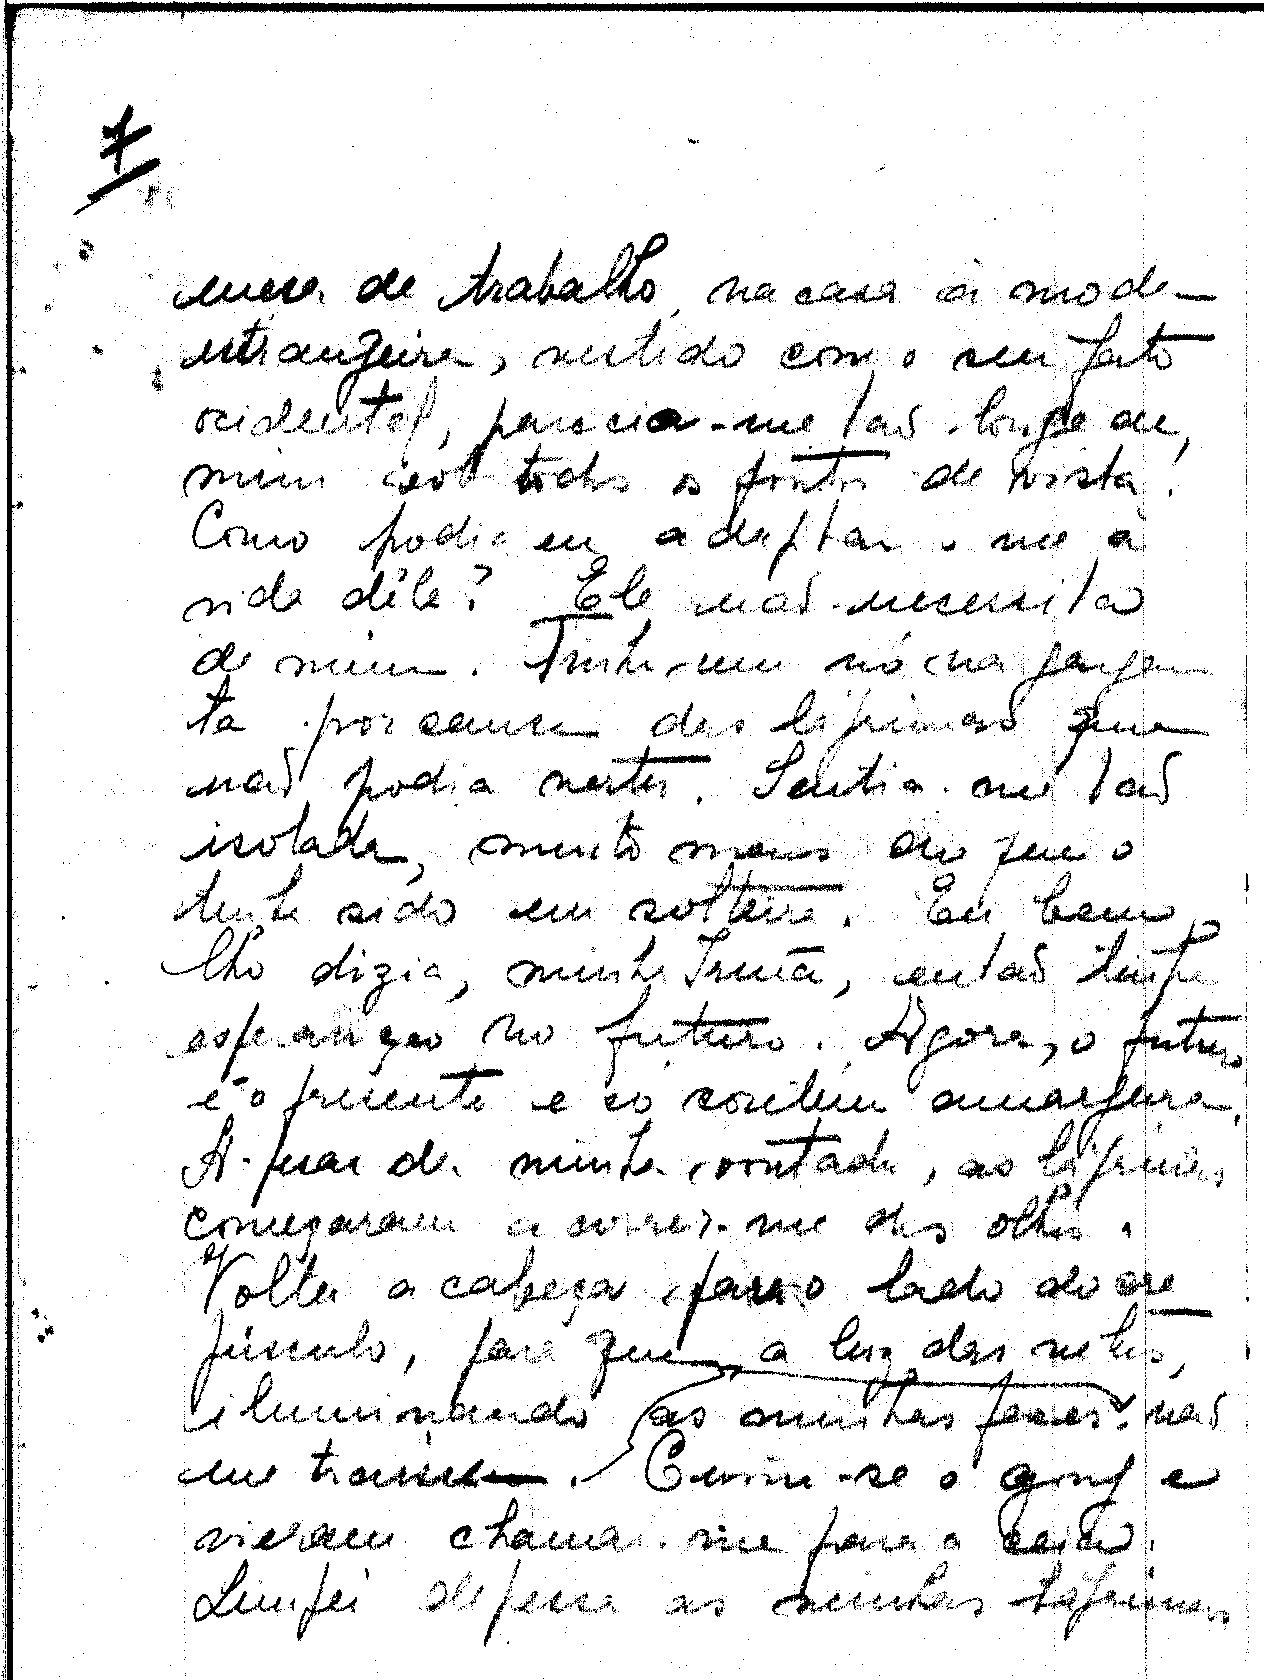 7
mesa de trabalho, na casa à moda
estrangeira, vestido com o seu fato
ocidental, parecia-me tão longe de
mim sob todos os pontos de vista!
Como podia eu adaptar-me à
vida dêle? Ele não necessita
de mim. Tinha um nó na gargan
ta por causa das lágrimas que
não podia verter. Sentia-me tão
isolada, muito mais do que o
tinha sido em solteira. Eu bem
lho dizia, minha Irmã, então tinha
esperança no futuro. Agora, o futuro
é o presente e só contém amargura.
A-pesar da minha vontade, as lágrimas
começaram a correr-me dos olhos.
Voltei a cabeça para o lado do cre
púsculo, para que, a luz das velas,
iluminando as minhas faces, não
me traisse. Ouviu-se o gong e
vieram chamar-me para a ceia.
Limpei depressa as minhas lágrimas